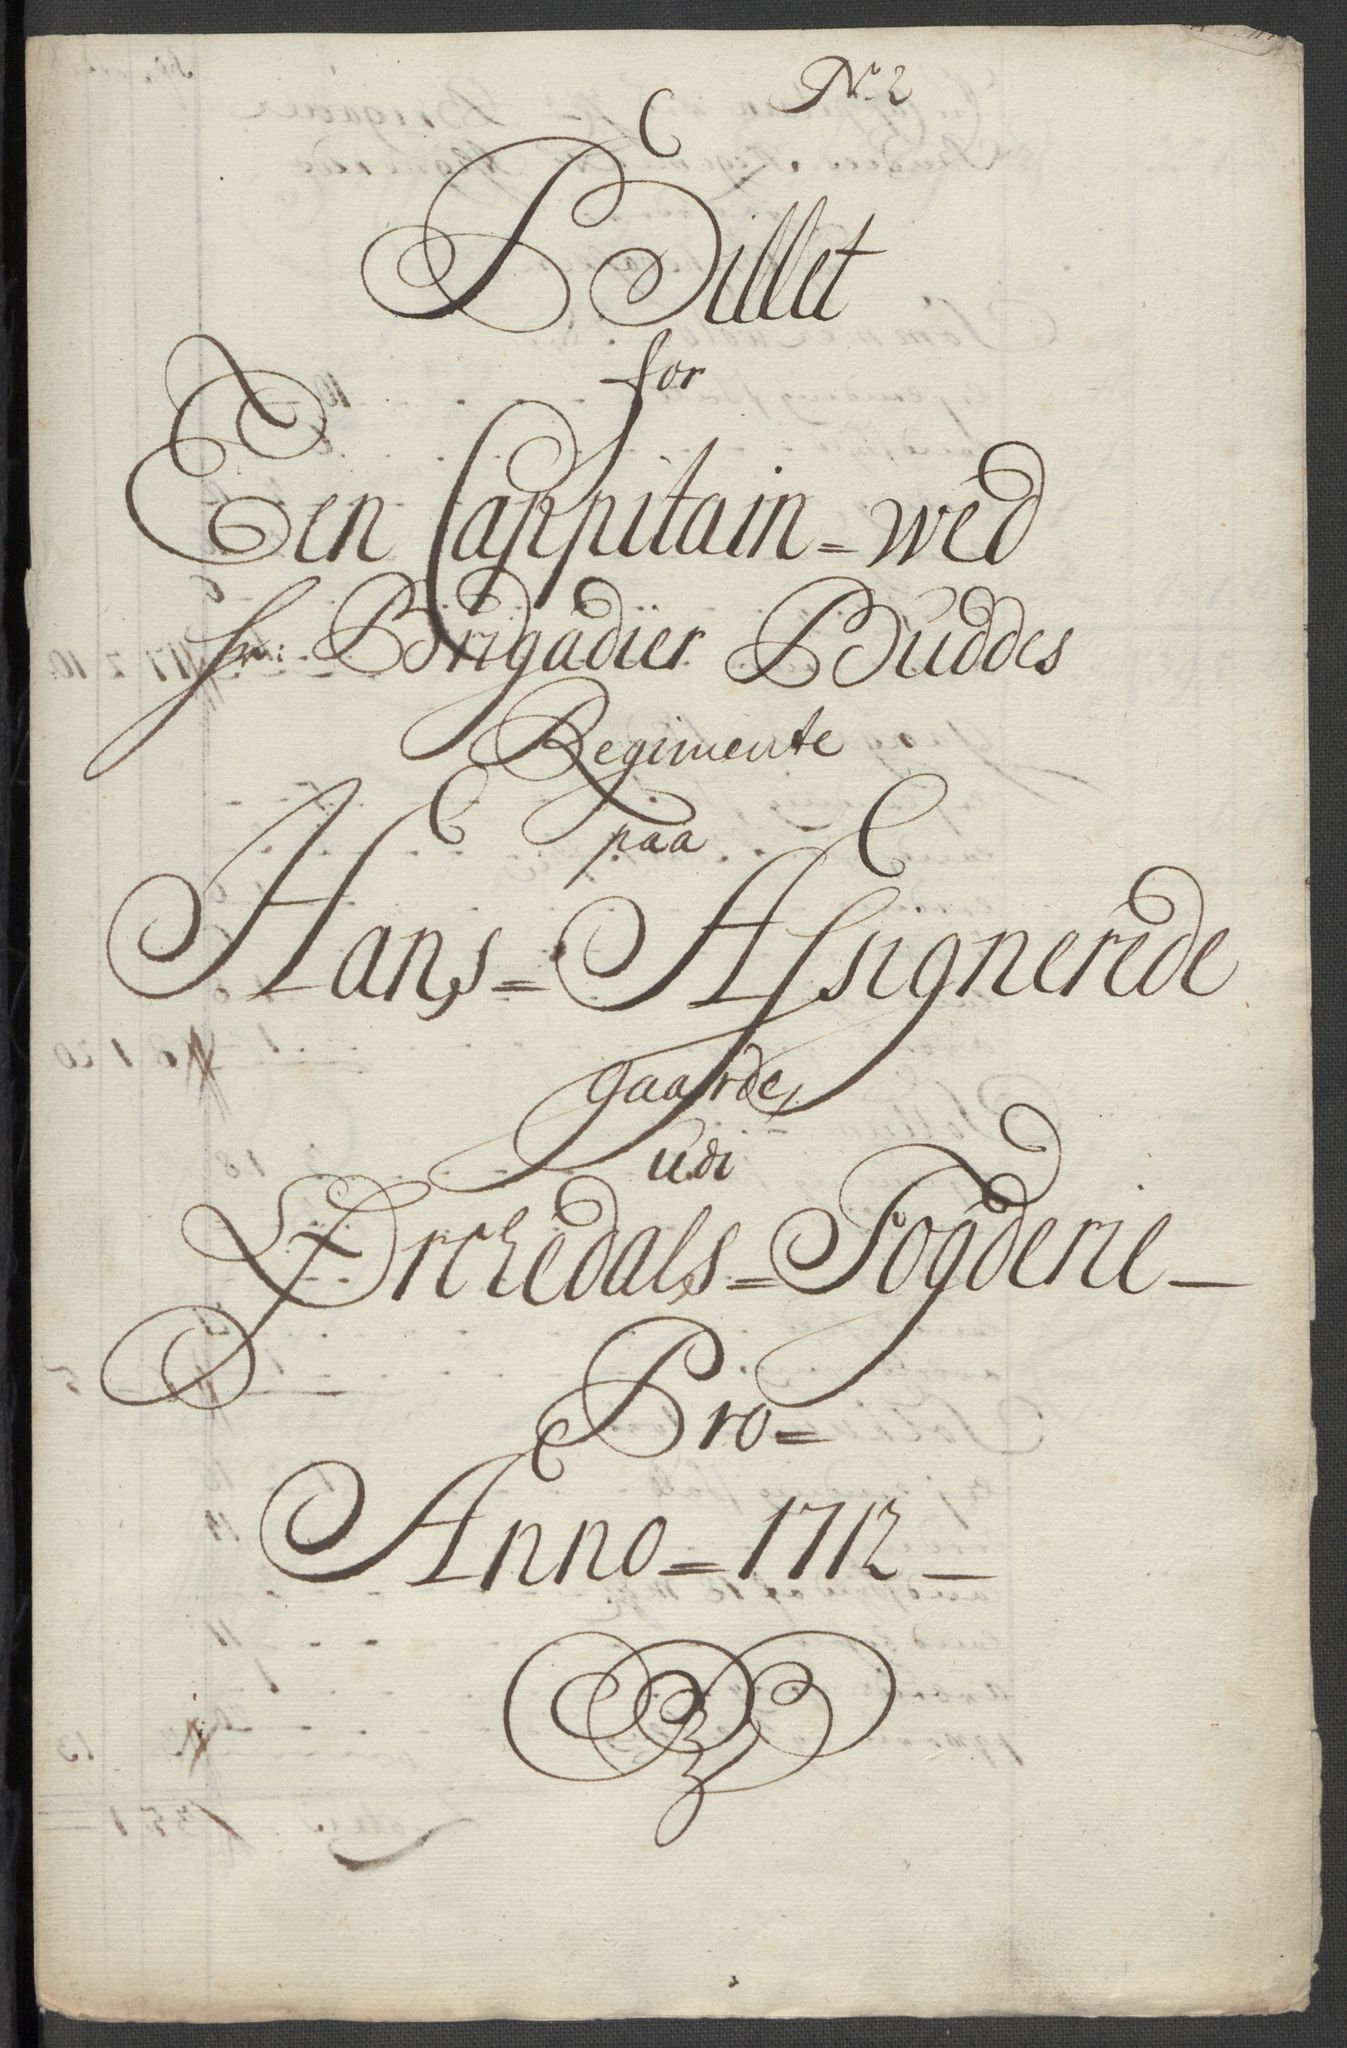 No. 2
Billet
for
Een Cappitain = wed
Hr: Brigadier Buddes
Regimente
paa
Hans = Assignerede
gaarde,
udi
Orchedals = Fogderie —
Pro =
Anno = 1712 —